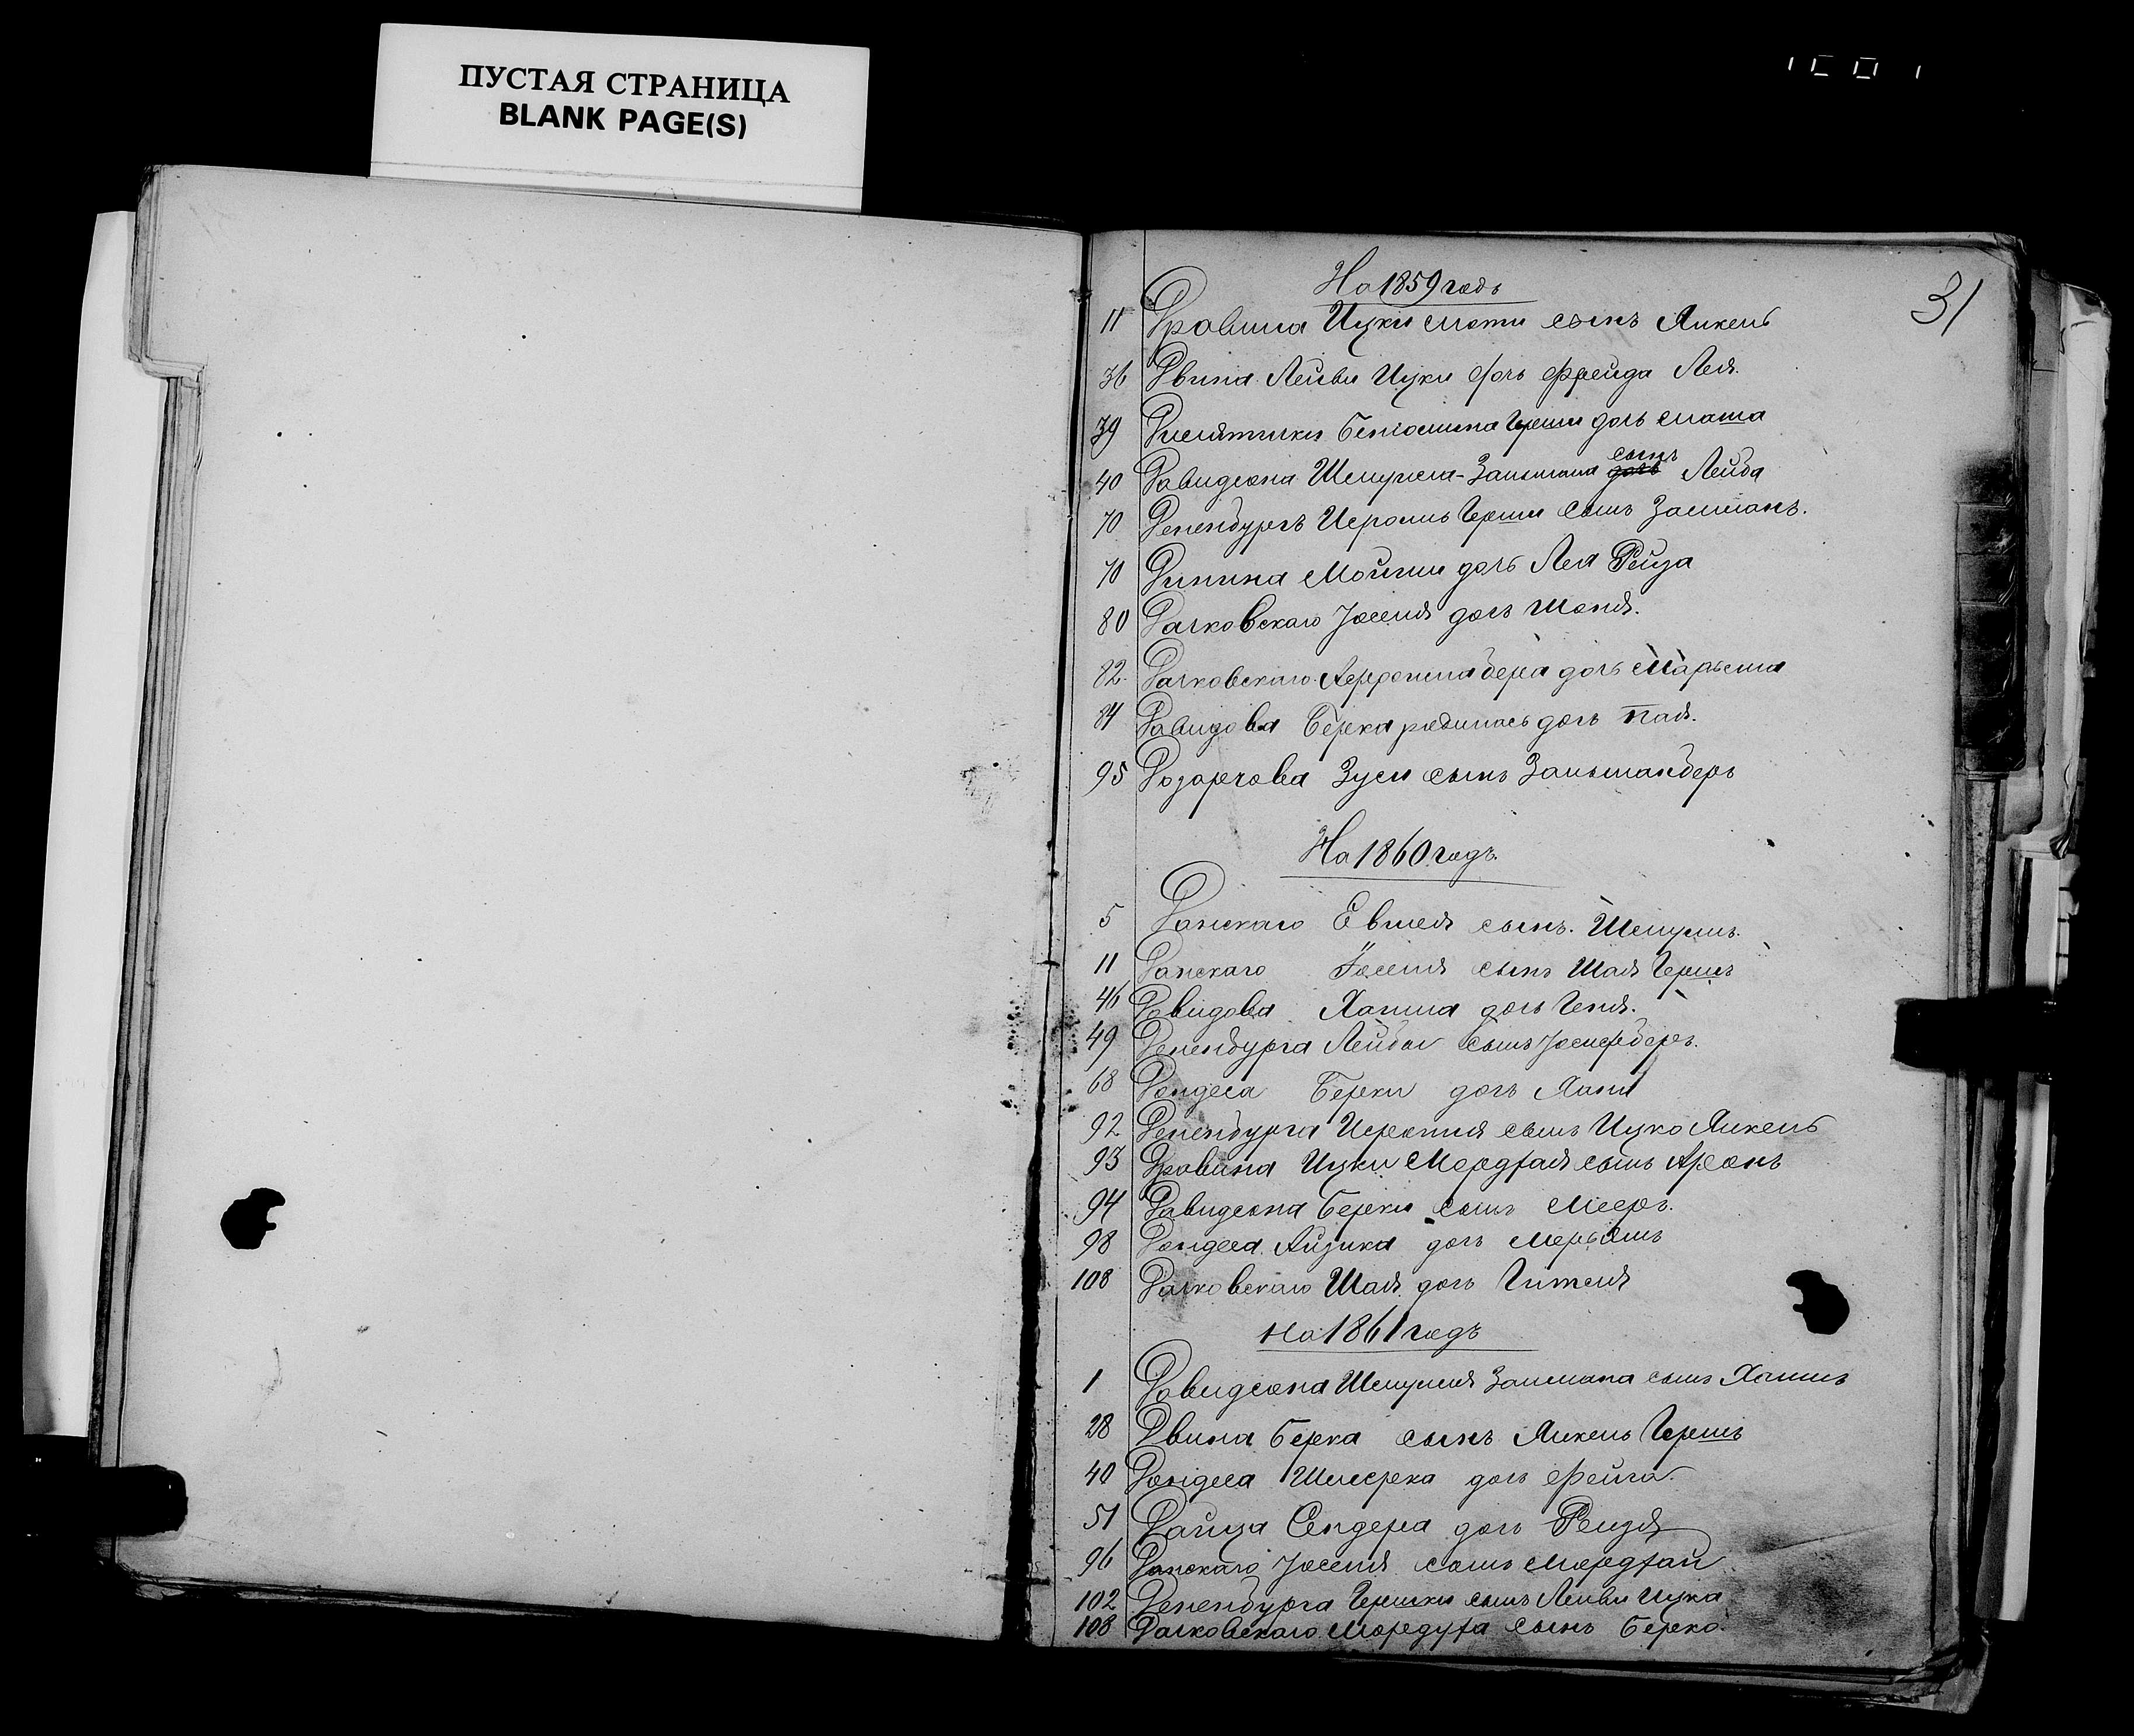 ПУСТАЯ СТРАНИЦА
BLANK PAGE(S)
31
На 1859 годъ
11 Дравина Ицки сынъ Янкель
36 Двина Лейбы Ицки дочь Фрейда Лея.
39 Беніомина Герши дочь
40 Давидсона Шмуила-Залмана сынъ Лейба
70 Дененбургъ Герши сынъ Залманъ.
70 Динина Мойши дочь Лея Рейза
80 Дачковскаго Іоселя дочь Шоня.
82. Дачковскаго бера дочь Марьяша
84 Давидова Берка родилась дочь
95 Зуси сынъ Залманберъ
На 1860 годъ.
5 Данскаго Евшея сынъ. Шмуилъ.
11 Данскаго Іоселя сынъ Шая Гершъ
46 Давидова Хаима дочь Геня.
49 Дененбурга Лейбы сынъ Іосифберъ.
68 Дондеса Берки дочь Хана
92 Дененбурга сынъ Ицко Янкель
93 Дравина Ицки Мордхая сынъ Аронъ
94 Давидсона Берки сынъ Мееръ.
98 Дондеса Айзика дочь Мерьямъ
108 Дачковскаго Шая дочь Гителя
на 1861 годъ
1 Давидсона Шмуиля Залмана сынъ Хаимъ
28 Двина Берка сынъ Янкель Гершъ
40 Дондеса дочь Фейга.
51 Сендера дочь Рейзя
96 Данскаго Іоселя сынъ Мордхай
102 Дененбурга Гершки сынъ Лейбы Ицка
108 Дачковскаго Мордуха сынъ Берко.